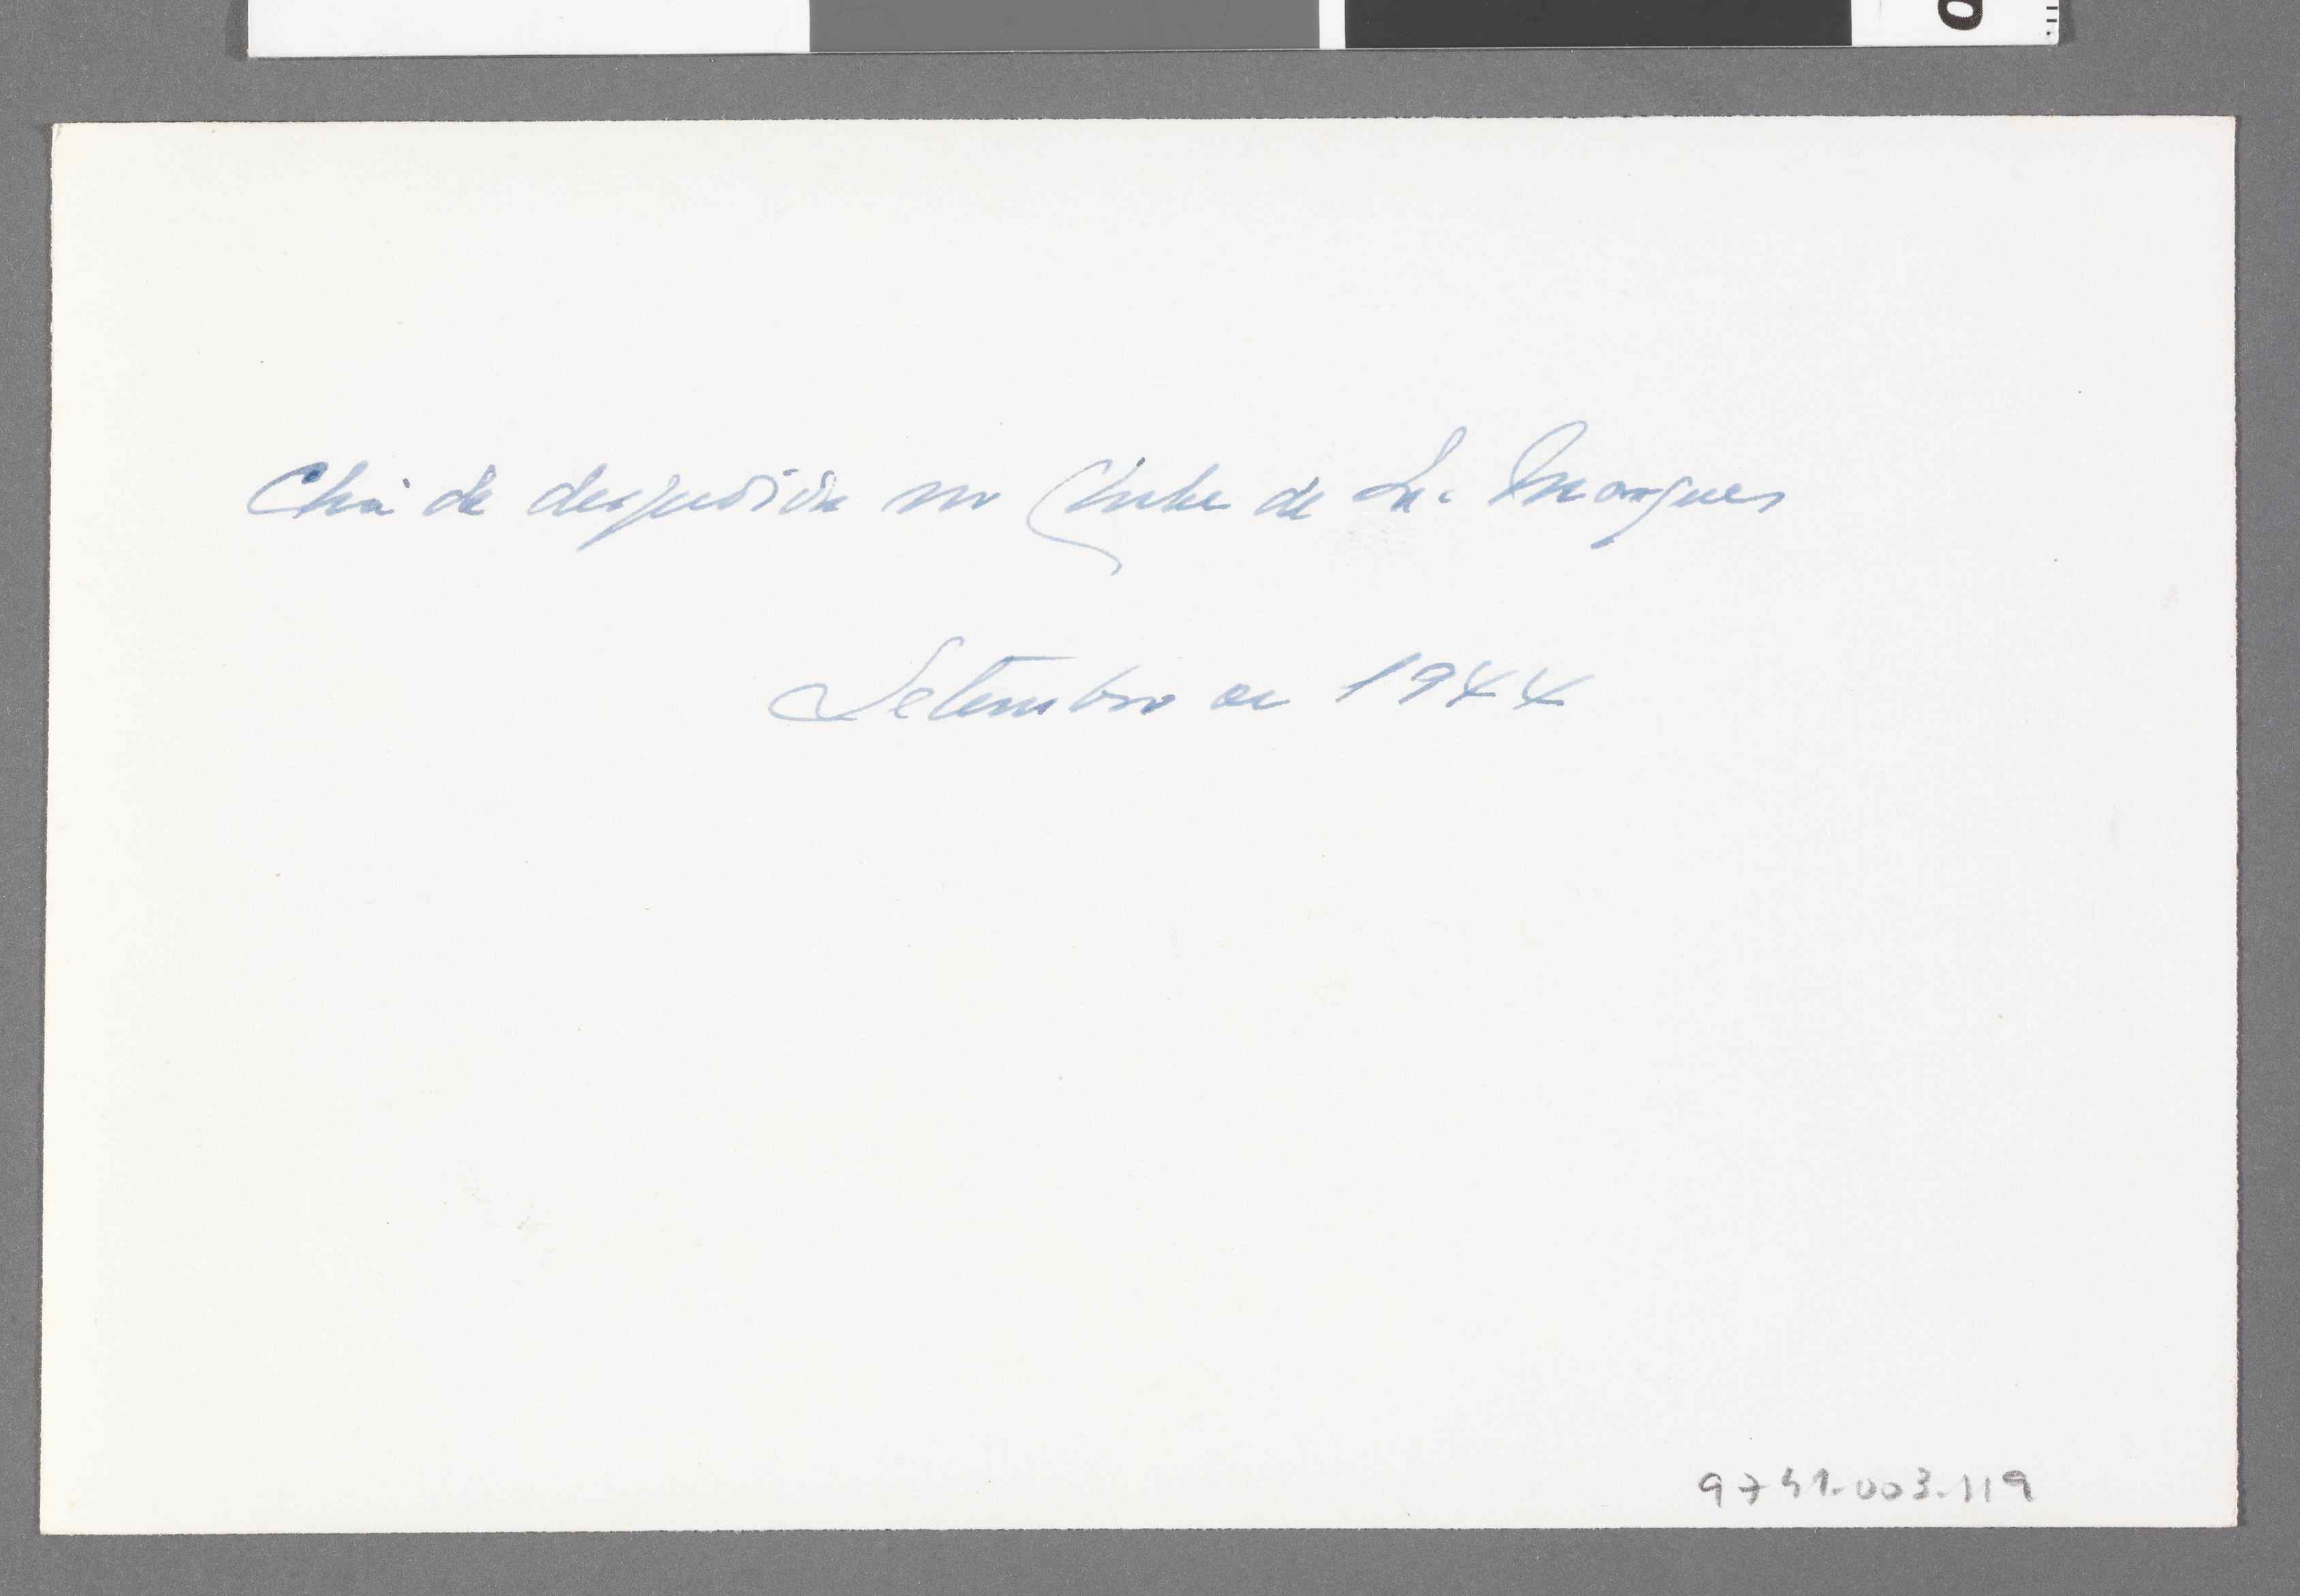 Chá de despedida no Clube de L. Marques
Setembro de 1944
9741.003.119